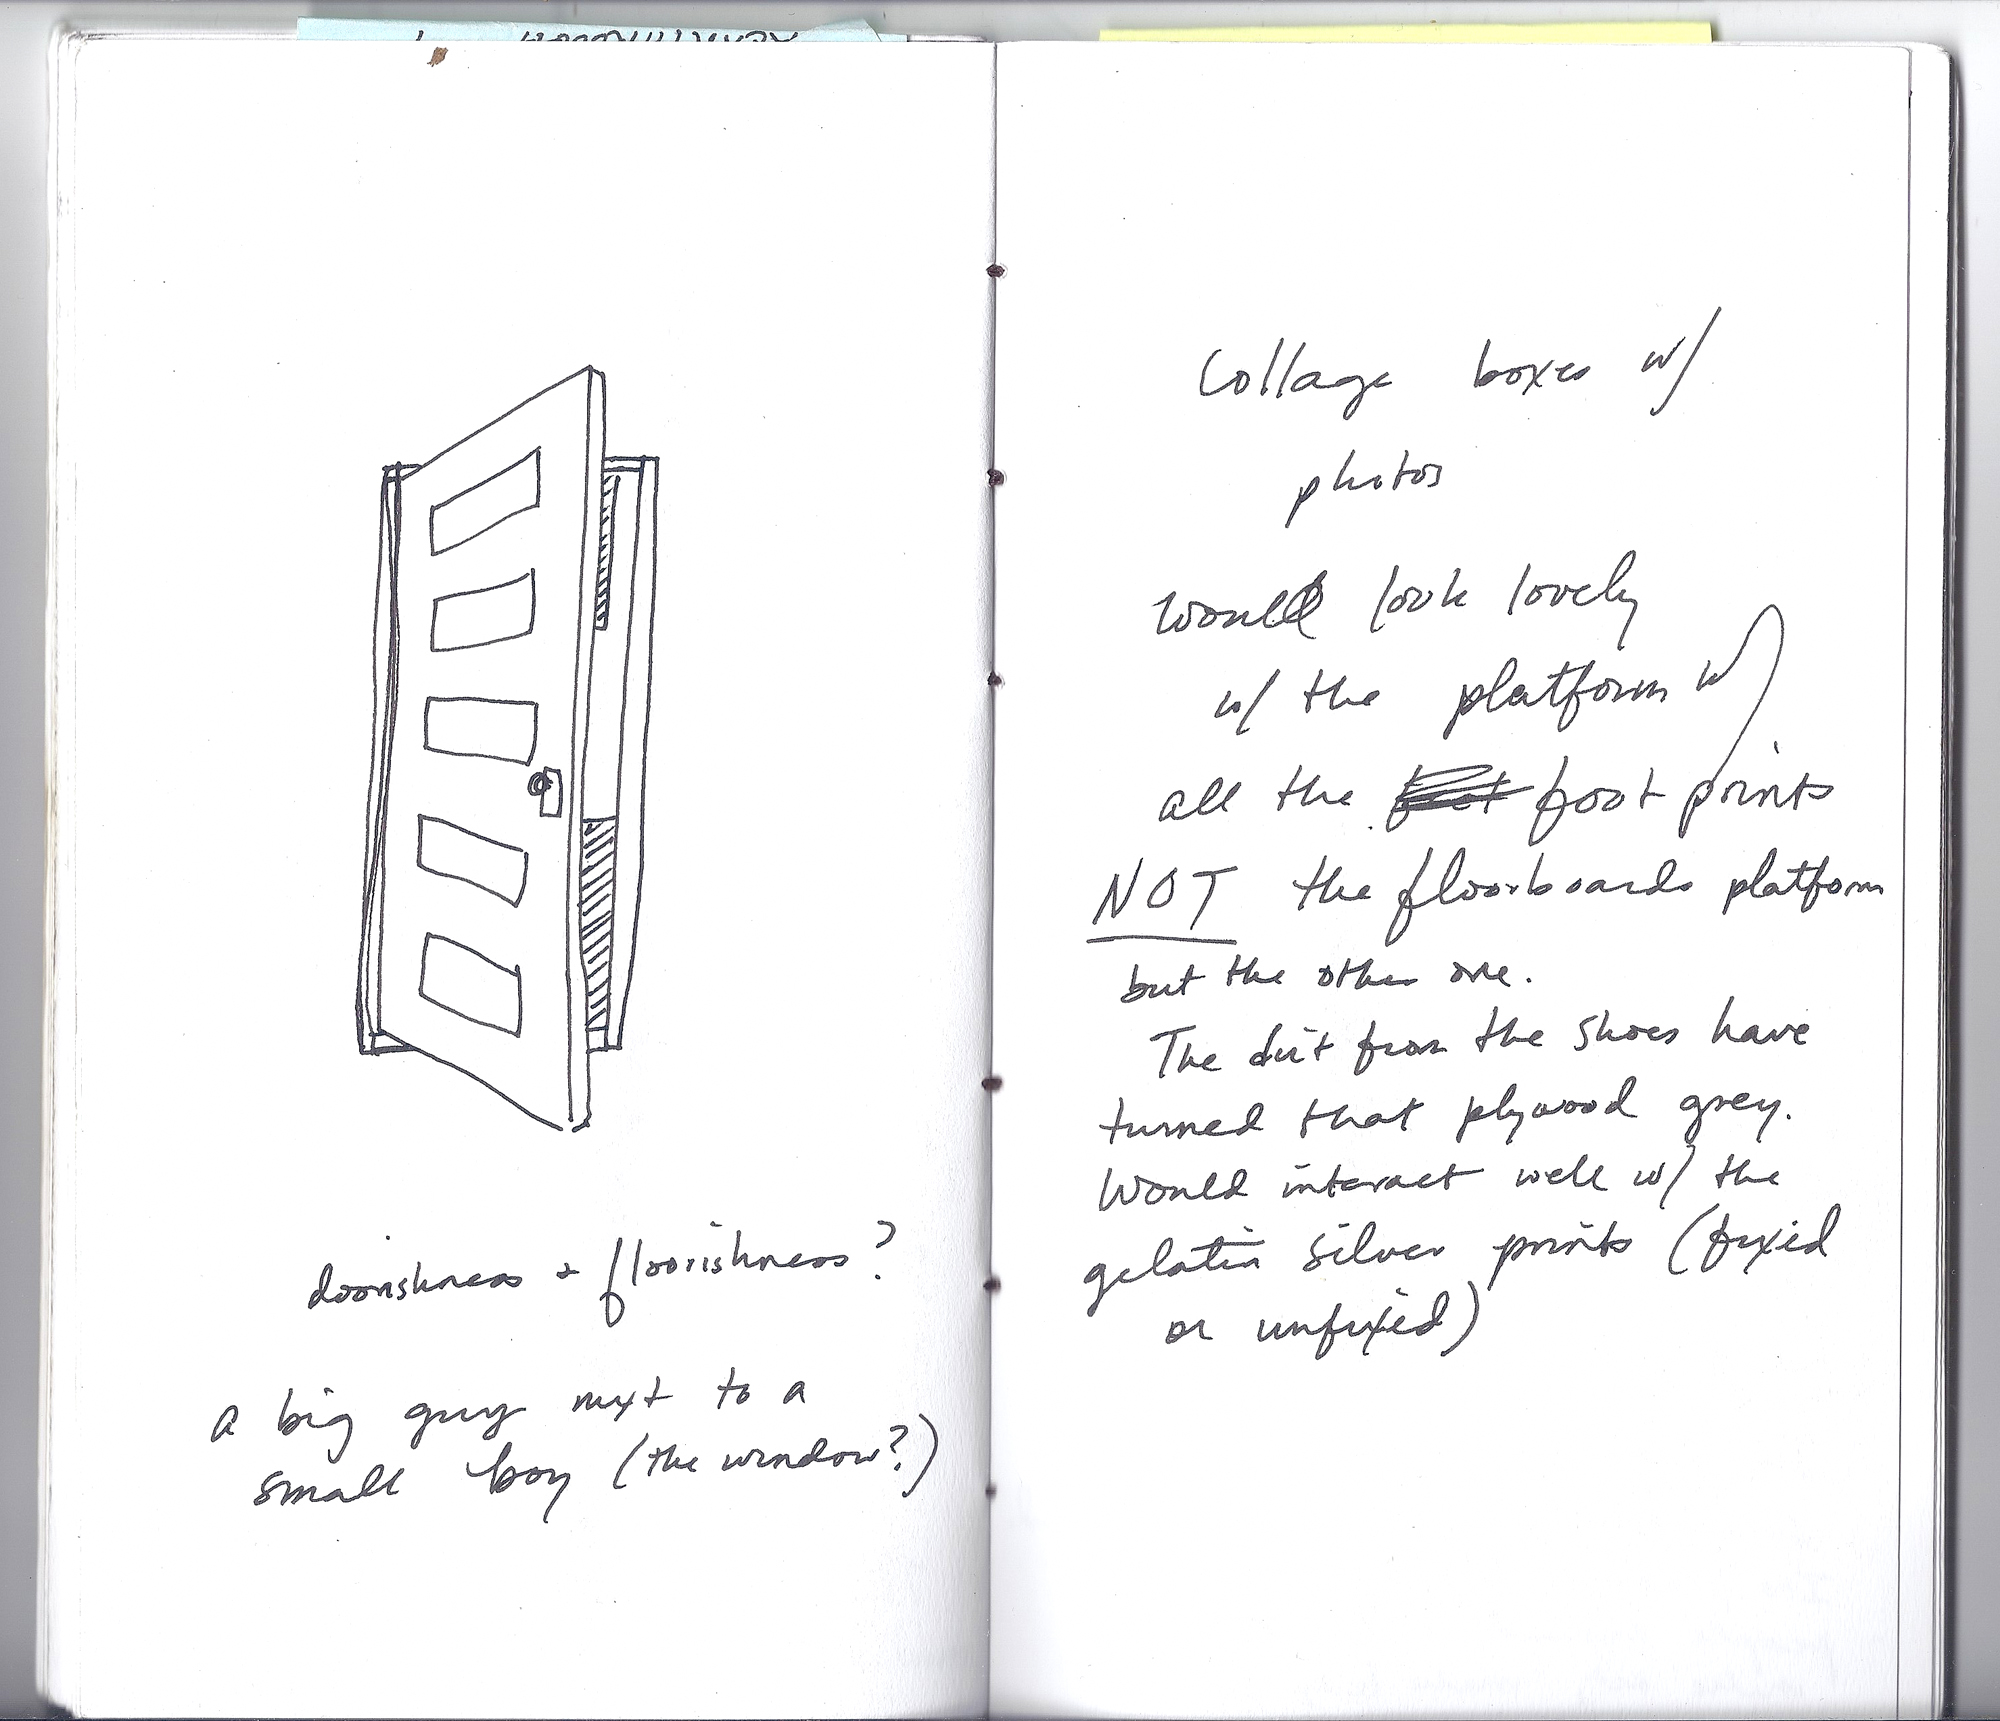 doorishness + floorishness?
a big guy next to a
small boy (the window?)
Collage boxes w/
photos
would look lovely
w/ the platform w/
all the foot prints
NOT the floorboards platform
but the other one.
The dirt from the shoes have
turned that plywood grey.
Would interact well w/ the
gelatin silver prints (fixed
or unfixed)